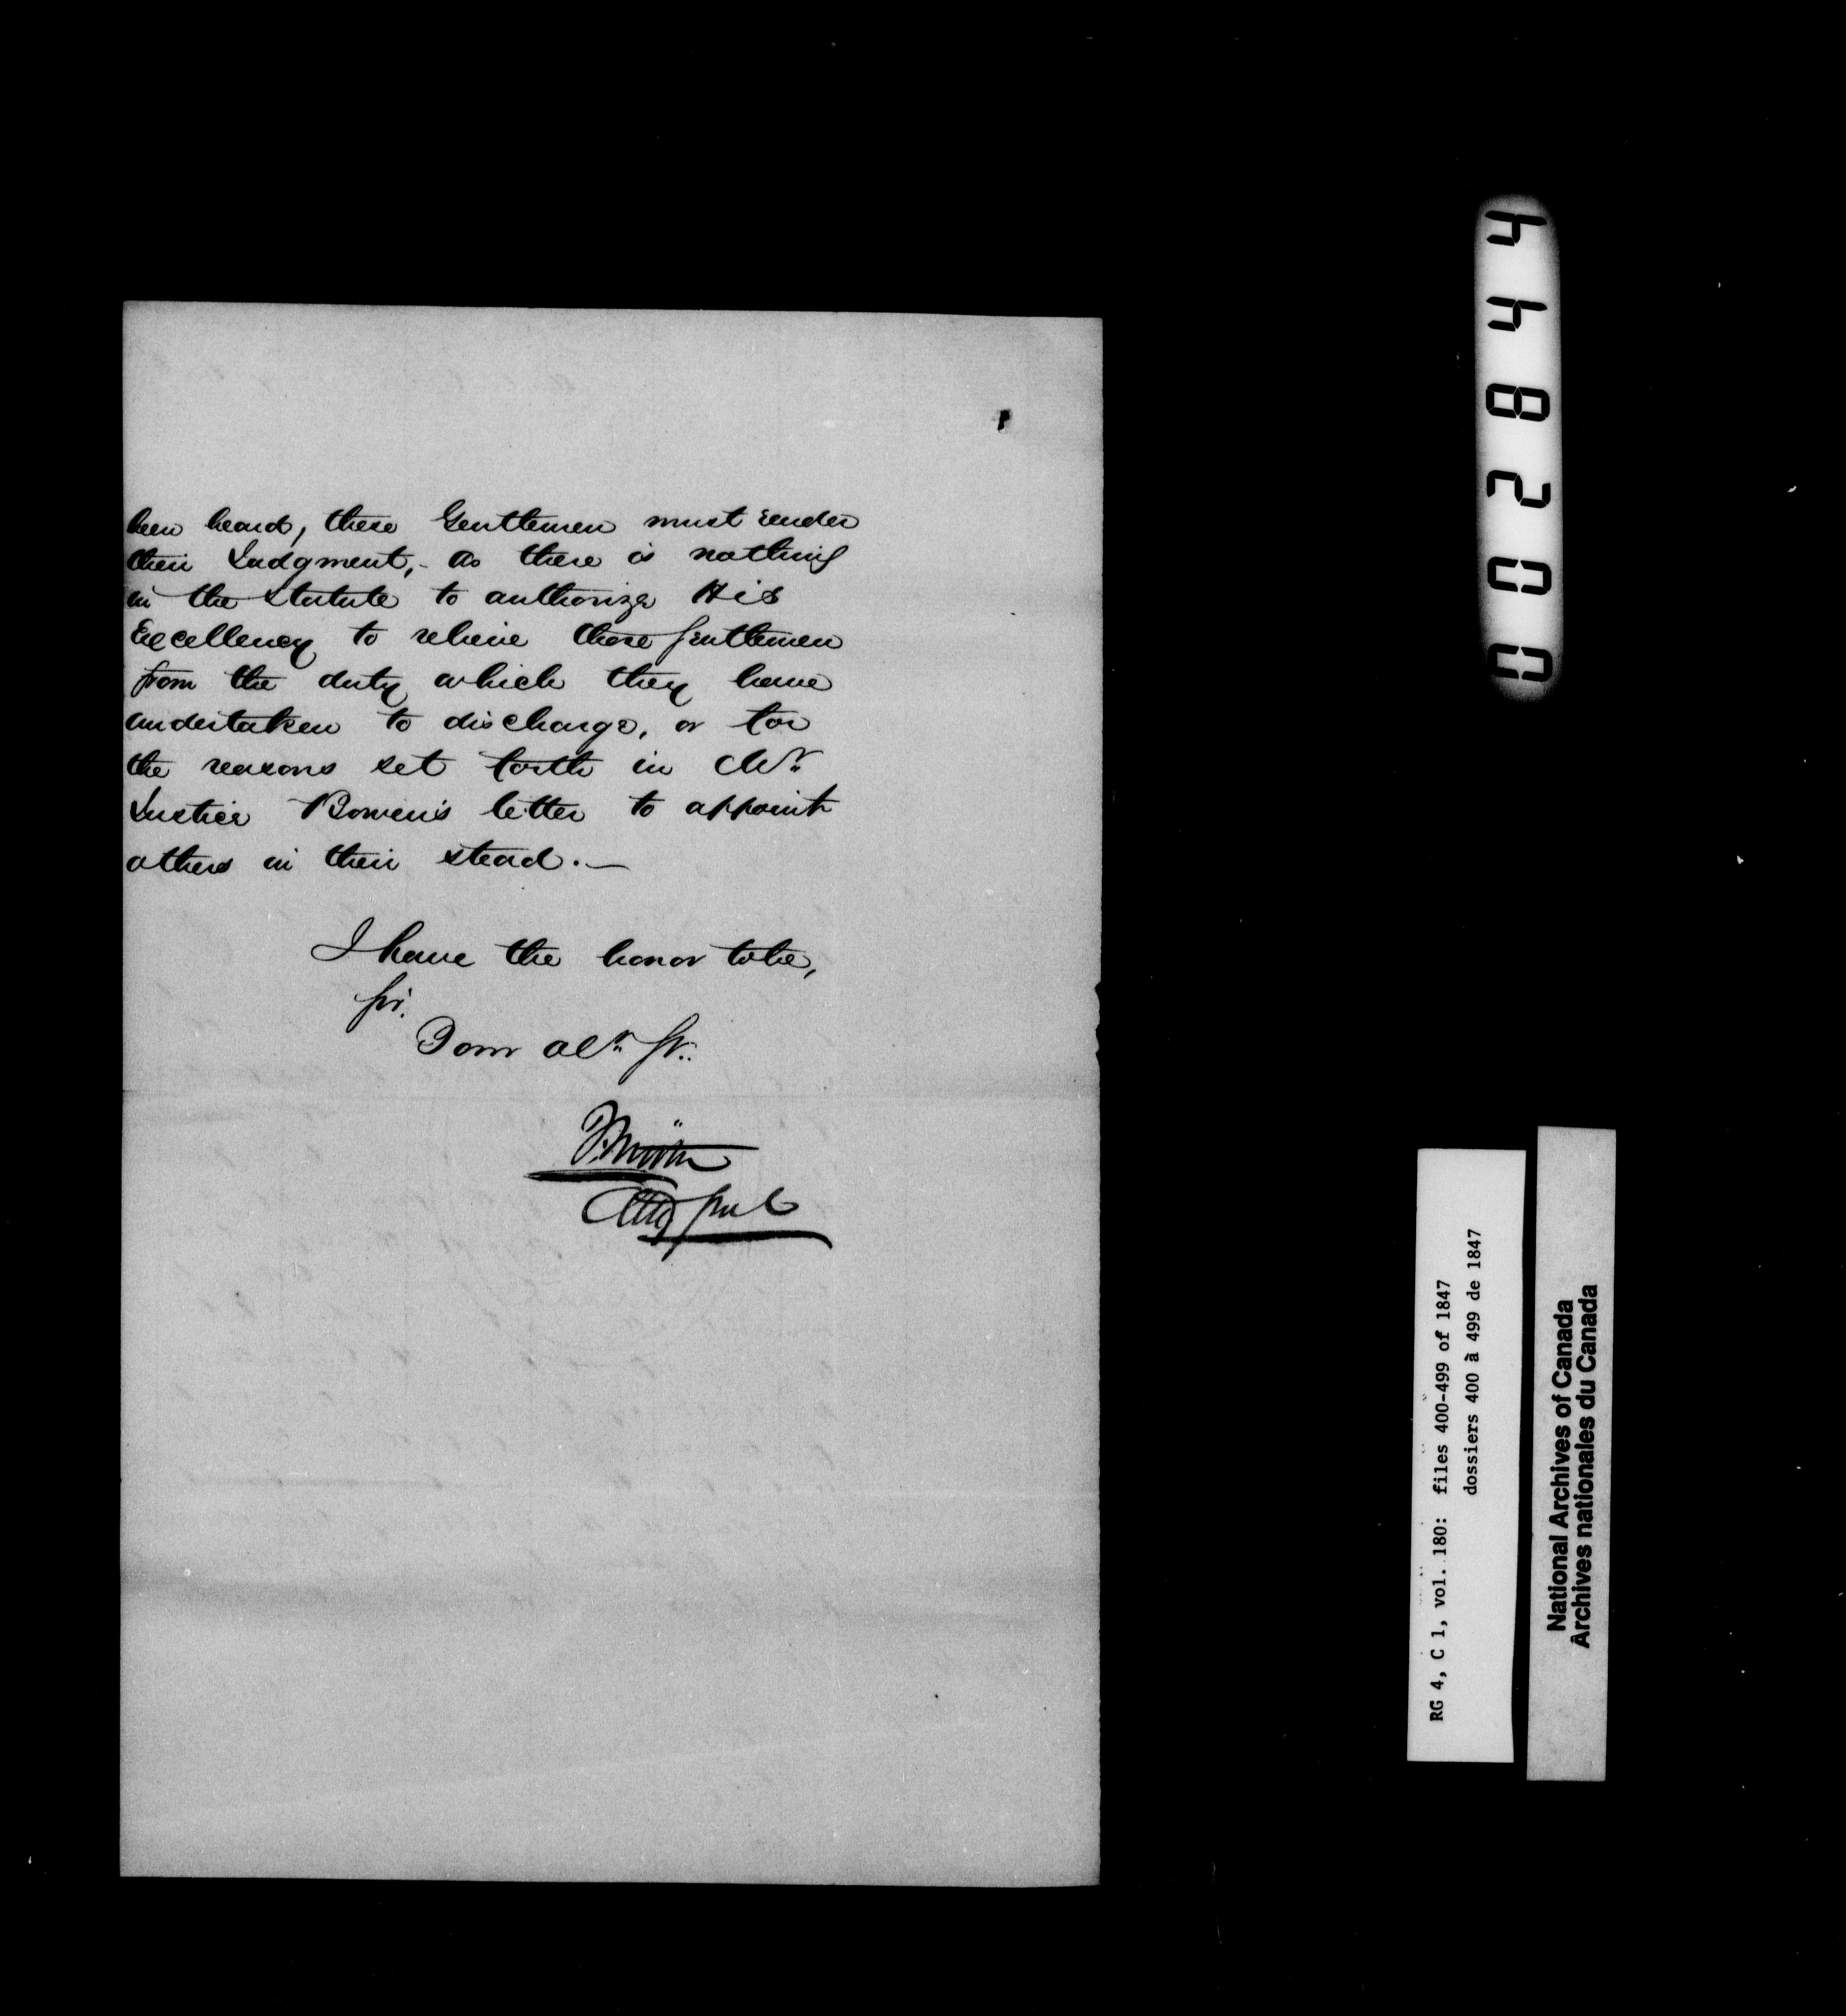 been heard, these Gentlemen must render
their Judgment,- as there is nothing
in the Statute to authorize His
Excellency to relieve those Gentlemen
from the duty which they have
undertaken to discharge, or for
the reasons set forth in Mr.
Justice Bowen's letter to appoint
others in their stead.—
I have the honor to be,
Sir.
Your
Atty Genl
002844
RG 4, C 1, vol. 180: files 400-499 of 1847
dossiers 400 à 499 de 1847
National Archives of Canada
Archives nationales du Canada